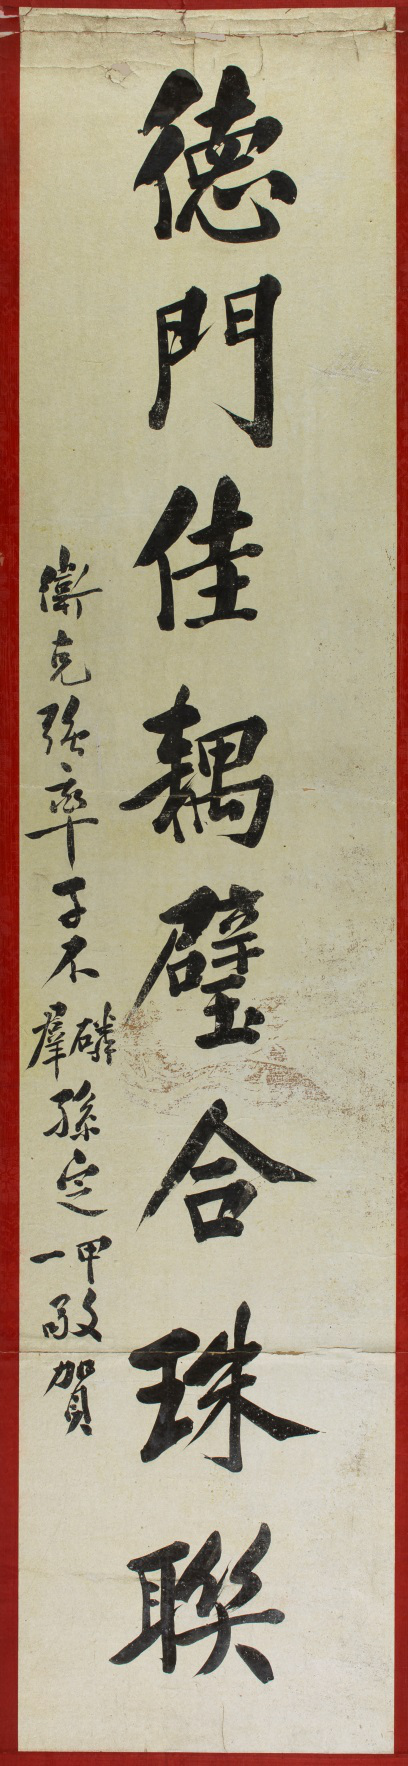 德門佳耦璧合珠聯
衛克強率子不磷羣孫定甲一敬賀